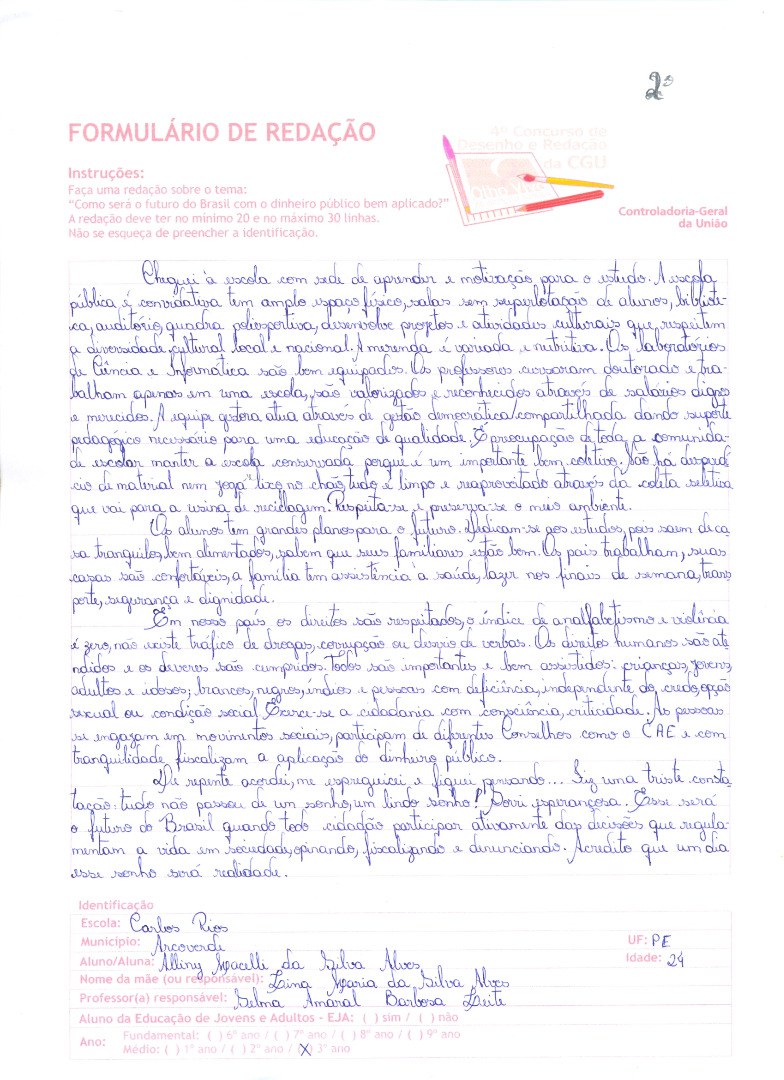 2º
FORMULÁRIO DE REDAÇÃO
4º Concurso de
Desenho e Redação
da CGU
Instruções:
Faça uma redação sobre o tema:
“Como será o futuro do Brasil com o dinheiro público bem aplicado?”
A redação deve ter no mínimo 20 e no máximo 30 linhas.
Não se esqueça de preencher a identificação.
Controladoria-Geral
da União
Cheguei à escola com sede de aprender e motivação para o estudo. A escola
pública é convidativa, tem amplo espaço físico, salas sem superlotação de alunos, bibliote-
ca, auditório, quadra poliesportiva, desenvolve projetos e atividades culturais que respeitem
a diversidade cultural local e nacional. A merenda é variada e nutritiva. Os laboratórios
de Ciência e Informática são bem equipados. Os professores cursaram doutorado e tra-
balham apenas em uma escola, são valorizados e reconhecidos através de salários dignos
e merecidos. A equipe gestora atua através de gestão democrática/compartilhada dando suporte
pedagógico necessário para uma educação de qualidade. É preocupação de toda a comunida-
de escolar manter a escola conservada porque é um importante bem coletivo. Não há desperdí
cio de material nem joga lixo no chão, tudo é limpo e reaproveitado através da coleta seletiva
que vai para a usina de reciclagem. Respeita-se e preserva-se o meio ambiente.
Os alunos tem grandes planos para o futuro. Dedicam-se aos estudos, pois saem de ca
sa tranquilos, bem alimentados, sabem que seus familiares estão bem. Os pais trabalham, suas
casas são confortáveis, a família tem assistência à saúde, lazer nos finais de semana, trans
porte, segurança e dignidade.
Em nosso país os direitos são respeitados, o índice de analfabetismo e violência
é zero, não existe tráfico de drogas, corrupção ou desvio de verbas. Os direitos humanos são ate
ndidos e os deveres são cumpridos. Todos são importantes e bem assistidos: crianças, jovens,
adultos e idosos; brancos, negros, índios e pessoas com deficiência, independente do credo, opção
sexual ou condição social. Exerce-se a cidadania com consciência, criticidade. As pessoas
se engajam em movimentos sociais, participam de diferentes Conselhos como o CAE e com
tranquilidade fiscalizam a aplicação do dinheiro público.
De repente acordei, me espreguicei e fiquei pensando... Fiz uma triste consta
tação: tudo não passou de um sonho, um lindo sonho! Sorri esperançosa. Esse será
o futuro do Brasil quando todo cidadão participar ativamente das decisões que regula-
mentam a vida em sociedade, opinando, fiscalizando e denunciando. Acredito que um dia
esse sonho será realidade.
Identificação
Escola: Carlos Rios
Município: Arcoverde UF: PE
Aluno/Aluna: Alliny Macelli da Silva Alves Idade: 24
Nome da mãe (ou responsável): Zaina Maria da Silva Alves
Professor(a) responsável: Selma Amaral Barbosa Leite
Aluno da Educação de Jovens e Adultos - EJA: ( ) sim / ( ) não
Ano: Fundamental: ( ) 6º ano / ( ) 7º ano / ( ) 8º ano / ( ) 9º ano
Médio: ( ) 1º ano / ( ) 2º ano / (X) 3º ano